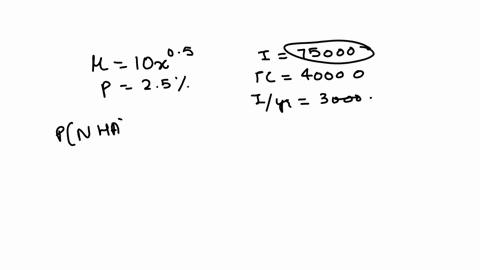 μ = 10x^0.5
P = 2.5%
I = 75000
TC = 40000
I/yr = 3000.
P(N HA